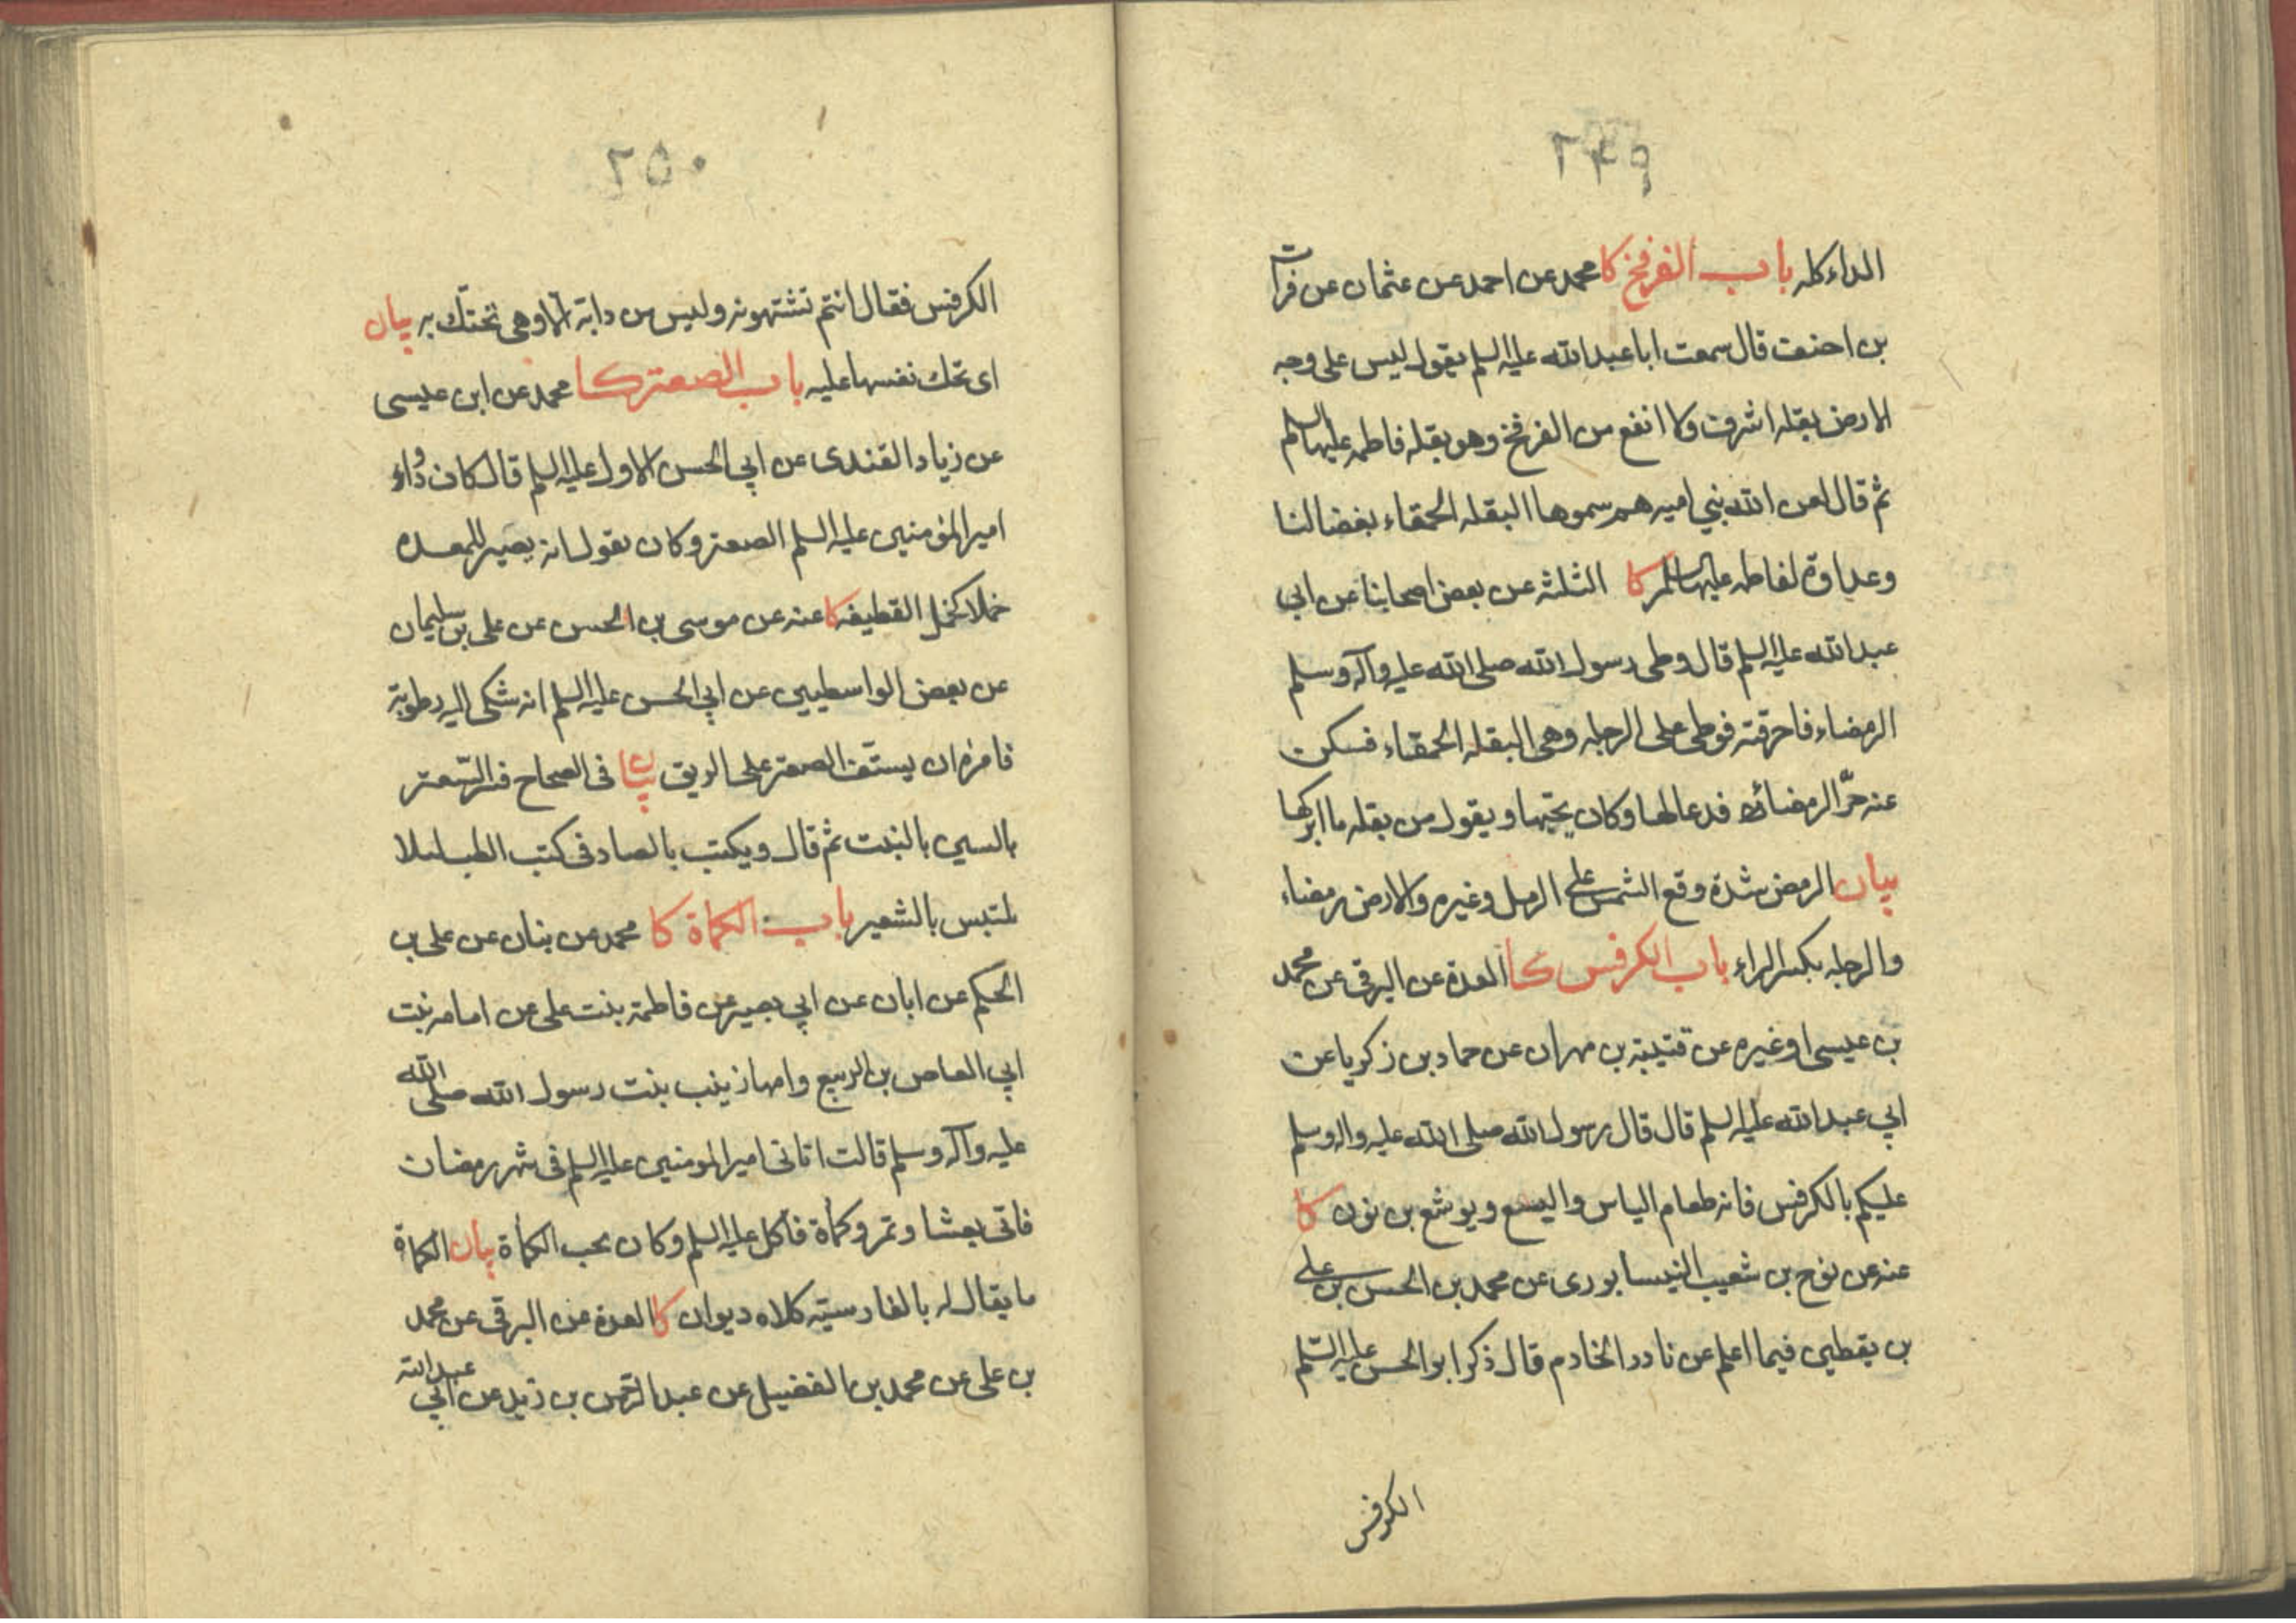 ٢٤٩
الداء كله باب الفرفخ كا محمد عن احمد عن عثمان عن فرات
بن احنف قال سمعت ابا عبد الله عليه السلم يقول ليس على وجه
الارض بقله اشرف ولا انفع من الفرفخ وهو بقله فاطمه عليها السلم
ثم قال لعن الله بني اميه هم سموها البقله الحمقاء بغضا لنا
وعداوة لفاطمه عليها السلم كا الثلثه عن بعض اصحابنا عن ابي
عبد الله عليه السلم قال وطى رسول الله صلى الله عليه وآله وسلم
الرمضاء فاحرقته فوطى على الرجله وهى البقله الحمقاء فسكن
عنه حرّ الرمضاء فدعا لها وكان يحبّها ويقول من بقله ما ابركها
بيان الرمض شدة وقع الشمس على الرمل وغيره والارض رمضاء
والرجله بكسر الراء باب الكرفس كا العدة عن البرقى عن محمد
بن عيسى او غيره عن قتيبة بن مهران عن حماد بن زكريا عن
ابي عبد الله عليه السلم قال قال رسول الله صلى الله عليه واله وسلم
عليكم بالكرفس فانه طعام الياس واليسع ويوشع بن نون كا
عنه عن نوح بن شعيب النيسابورى عن محمد بن الحسن بن على
بن يقطين فيما اعلم عن نادر الخادم قال ذكر ابو الحسن عليه السّلم
الكرفس
٢٥٠
الكرفس فقال انتم تشتهونه وليس من دابة الا وهى تحتكّ به بيان
اى تحك نفسها عليه باب الصعتر كا محمد عن ابن عيسى
عن زياد القندى عن ابي الحسن الاول عليه السلم قال كان دواء
امير المؤمنين عليه السلم الصعتر وكان يقول انه يصير للمعده
خملا كخمل القطيفه كا عنه عن موسى بن الحسن عن على بن سليمان
عن بعض الواسطيين عن ابي الحسن عليه السلم انه شكى اليه رطوبة
فامره ان يستف الصعتر على الريق بيان فى الصحاح فسر السّعتر
بالسين بالنبت ثم قال ويكتب بالصاد فى كتب الطب لئلا
يلتبس بالشعير باب الكماة كا محمد عن بنان عن على بن
الحكم عن ابان عن ابي بصير عن فاطمة بنت على عن امامه بنت
ابي العاص بن الربيع وامها زينب بنت رسول الله صلى الله
عليه وآله وسلم قالت اتانى امير المومنين عليه السلم فى شهر رمضان
فاتى بعشا وتمر وكمأة فأكل عليه السلم وكان يحب الكمأة بيان الكمأة
ما يقال له بالفارسيّه كلاه ديوان كا العدة عن البرقى عن محمد
بن على عن محمد بن الفضيل عن عبد الرّحمن بن زيد عن ابي عبد الله